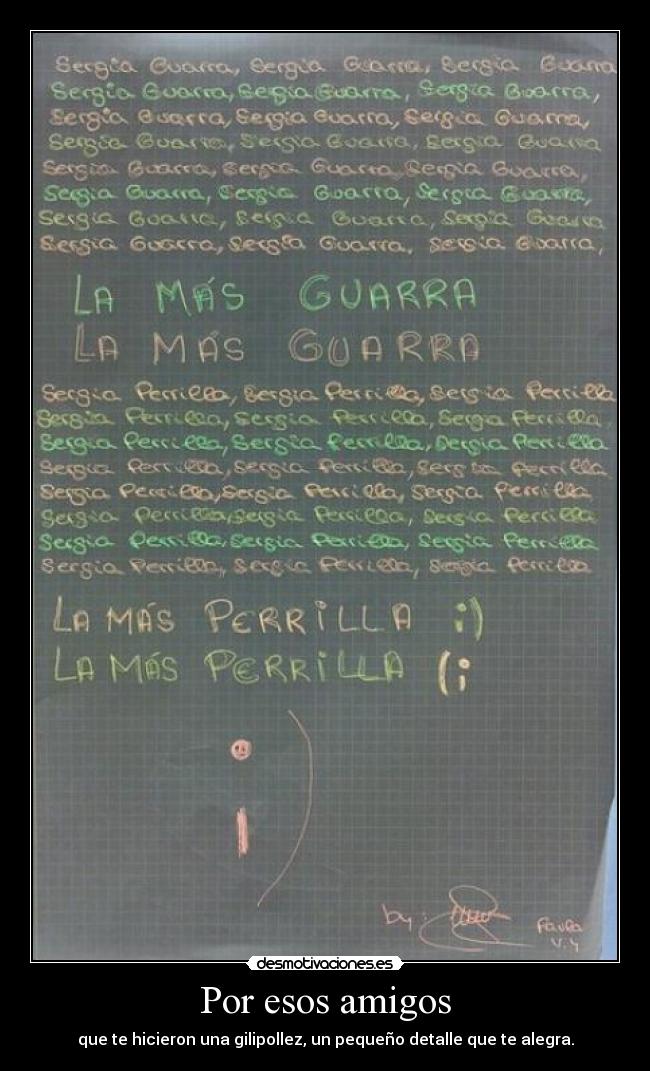 Sergia Guarra, Sergia Guarra, Sergia Guarra
Sergia Guarra, Sergia Guarra, Sergia Guarra,
Sergia Guarra, Sergia Guarra, Sergia Guarra,
Sergia Guarra, Sergia Guarra, Sergia Guarra
Sergia Guarra, Sergia Guarra, Sergia Guarra,
Sergia Guarra, Sergia Guarra, Sergia Guarra,
Sergia Guarra, Sergia Guarra, Sergia Guarra
Sergia Guarra, Sergia Guarra, Sergia Guarra,
LA MÁS GUARRA
LA MÁS GUARRA
Sergia Perrilla, Sergia Perrilla, Sergia Perrilla
Sergia Perrilla, Sergia Perrilla, Sergia Perrilla
Sergia Perrilla, Sergia Perrilla, Sergia Perrilla
Sergia Perrilla, Sergia Perrilla, Sergia Perrilla
Sergia Perrilla, Sergia Perrilla, Sergia Perrilla
Sergia Perrilla, Sergia Perrilla, Sergia Perrilla
Sergia Perrilla, Sergia Perrilla, Sergia Perrilla
Sergia Perrilla, Sergia Perrilla, Sergia Perrilla
LA MÁS PERRiLLA ;)
LA MÁS PERRiLLA (;
;)
by:
Paula
V.4
desmotivaciones.es
Por esos amigos
que te hicieron una gilipollez, un pequeño detalle que te alegra.